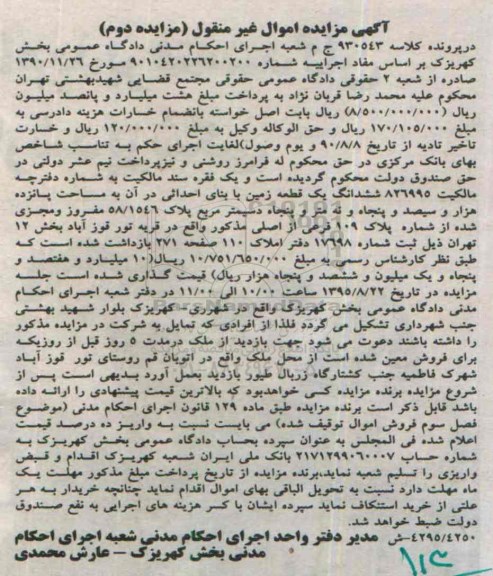 آگهی مزایده اموال غیر منقول (مزایده دوم)
درپرونده کلاسه ۹۳۰۵۴۳ ج م شعبه اجرای احکام مدنی دادگاه عمومی بخش
کهریزک بر اساس مفاد اجراییه شماره ۹۰۱۰۴۲۰۲۲۶۲۰۰۲۰۰ مورخ ۱۳۹۰/۱۱/۲۶
صادره از شعبه ۲ حقوقی دادگاه عمومی حقوقی مجتمع قضایی شهیدبهشتی تهران
محکوم علیه محمد رضا قربان نژاد به پرداخت مبلغ هشت میلیارد و پانصد میلیون
ریال (۸/۵۰۰/۰۰۰/۰۰۰) ریال بابت اصل خواسته بانضمام خسارات هزینه دادرسی به
مبلغ ۱۷۰/۱۰۵/۰۰۰ ریال و حق الوکاله وکیل به مبلغ ۱۲۰/۰۰۰/۰۰۰ ریال و خسارت
تاخیر تادیه از تاریخ ۹۰/۸/۸ و یوم وصول)لغایت اجرای حکم به تناسب شاخص
بهای بانک مرکزی در حق محکوم له فرامرز روشنی و نیزپرداخت نیم عشر دولتی در
حق صندوق دولت محکوم گردیده است و یک فقره سند مالکیت به شماره دفترچه
مالکیت ۸۲۶۹۹۵ ششدانگ یک قطعه زمین با بنای احداثی در آن به مساحت پانزده
هزار و سیصد و پنجاه و نه متر و پنجاه دسیمتر مربع پلاک ۵۸/۱۵۴۶ مفروز ومجزی
شده از شماره پلاک ۱۰۹ فرعی از اصلی مذکور واقع در قریه تور قوز آباد بخش ۱۲
تهران ذیل ثبت شماره ۱۷۶۹۸ دفتر املاک ۱۱۰ صفحه ۲۷۱ بازداشت شده است که
طبق نظر کارشناس رسمی به مبلغ ۱۰/۷۵۱/۶۵۰/۰۰۰ ریال(۱۰ میلیارد و هفتصد و
پنجاه و یک میلیون و ششصد و پنجاه هزار ریال) قیمت گذاری شده است جلسه
مزایده در تاریخ ۱۳۹۵/۸/۲۲ ساعت ۱۰/۰۰ الی ۱۱/۰۰ در دفتر شعبه اجرای احکام
مدنی دادگاه عمومی بخش کهریزک واقع در شهرری- کهریزک بلوار شهید بهشتی
جنب شهرداری تشکیل می گردد فلذا از افرادی که تمایل به شرکت در مزایده مذکور
را داشته باشند دعوت می شود جهت بازدید از ملک درمدت ۵ روز قبل از روزیکه
برای فروش معین شده است از محل ملک واقع در اتوبان قم روستای تور قوز آباد
شهرک فاطمیه جنب کشتارگاه زربال طیور بازدید بعمل آورد بدیهی است پس از
شروع مزایده برنده مزایده کسی خواهدبود که بالاترین قیمت پیشنهادی را ارائه داده
باشد قابل ذکر است برنده مزایده طبق ماده ۱۲۹ قانون اجرای احکام مدنی (موضوع
فصل سوم فروش اموال توقیف شده) می بایست نسبت به واریز ده درصد قیمت
اعلام شده فی المجلس به عنوان سپرده بحساب دادگاه عمومی بخش کهریزک به
شماره حساب ۲۱۷۱۲۹۹۰۶۰۰۰۷ بانک ملی ایران شعبه کهریزک اقدام و قبض
واریزی را تسلیم شعبه نماید،برنده مزایده از تاریخ پرداخت مبلغ مذکور مهلت یک
ماه مهلت دارد نسبت به تحویل الباقی بهای اموال اقدام نماید چنانچه خریدار به هر
علتی از خرید استنکاف نماید سپرده ایشان با کسر هزینه های اجرایی به نفع صندوق
دولت ضبط خواهد شد.
۴۲۹۵/۴۲۵۰-ش مدیر دفتر واحد اجرای احکام مدنی شعبه اجرای احکام
مدنی بخش کهریزک – عارش محمدی
۱۱۳